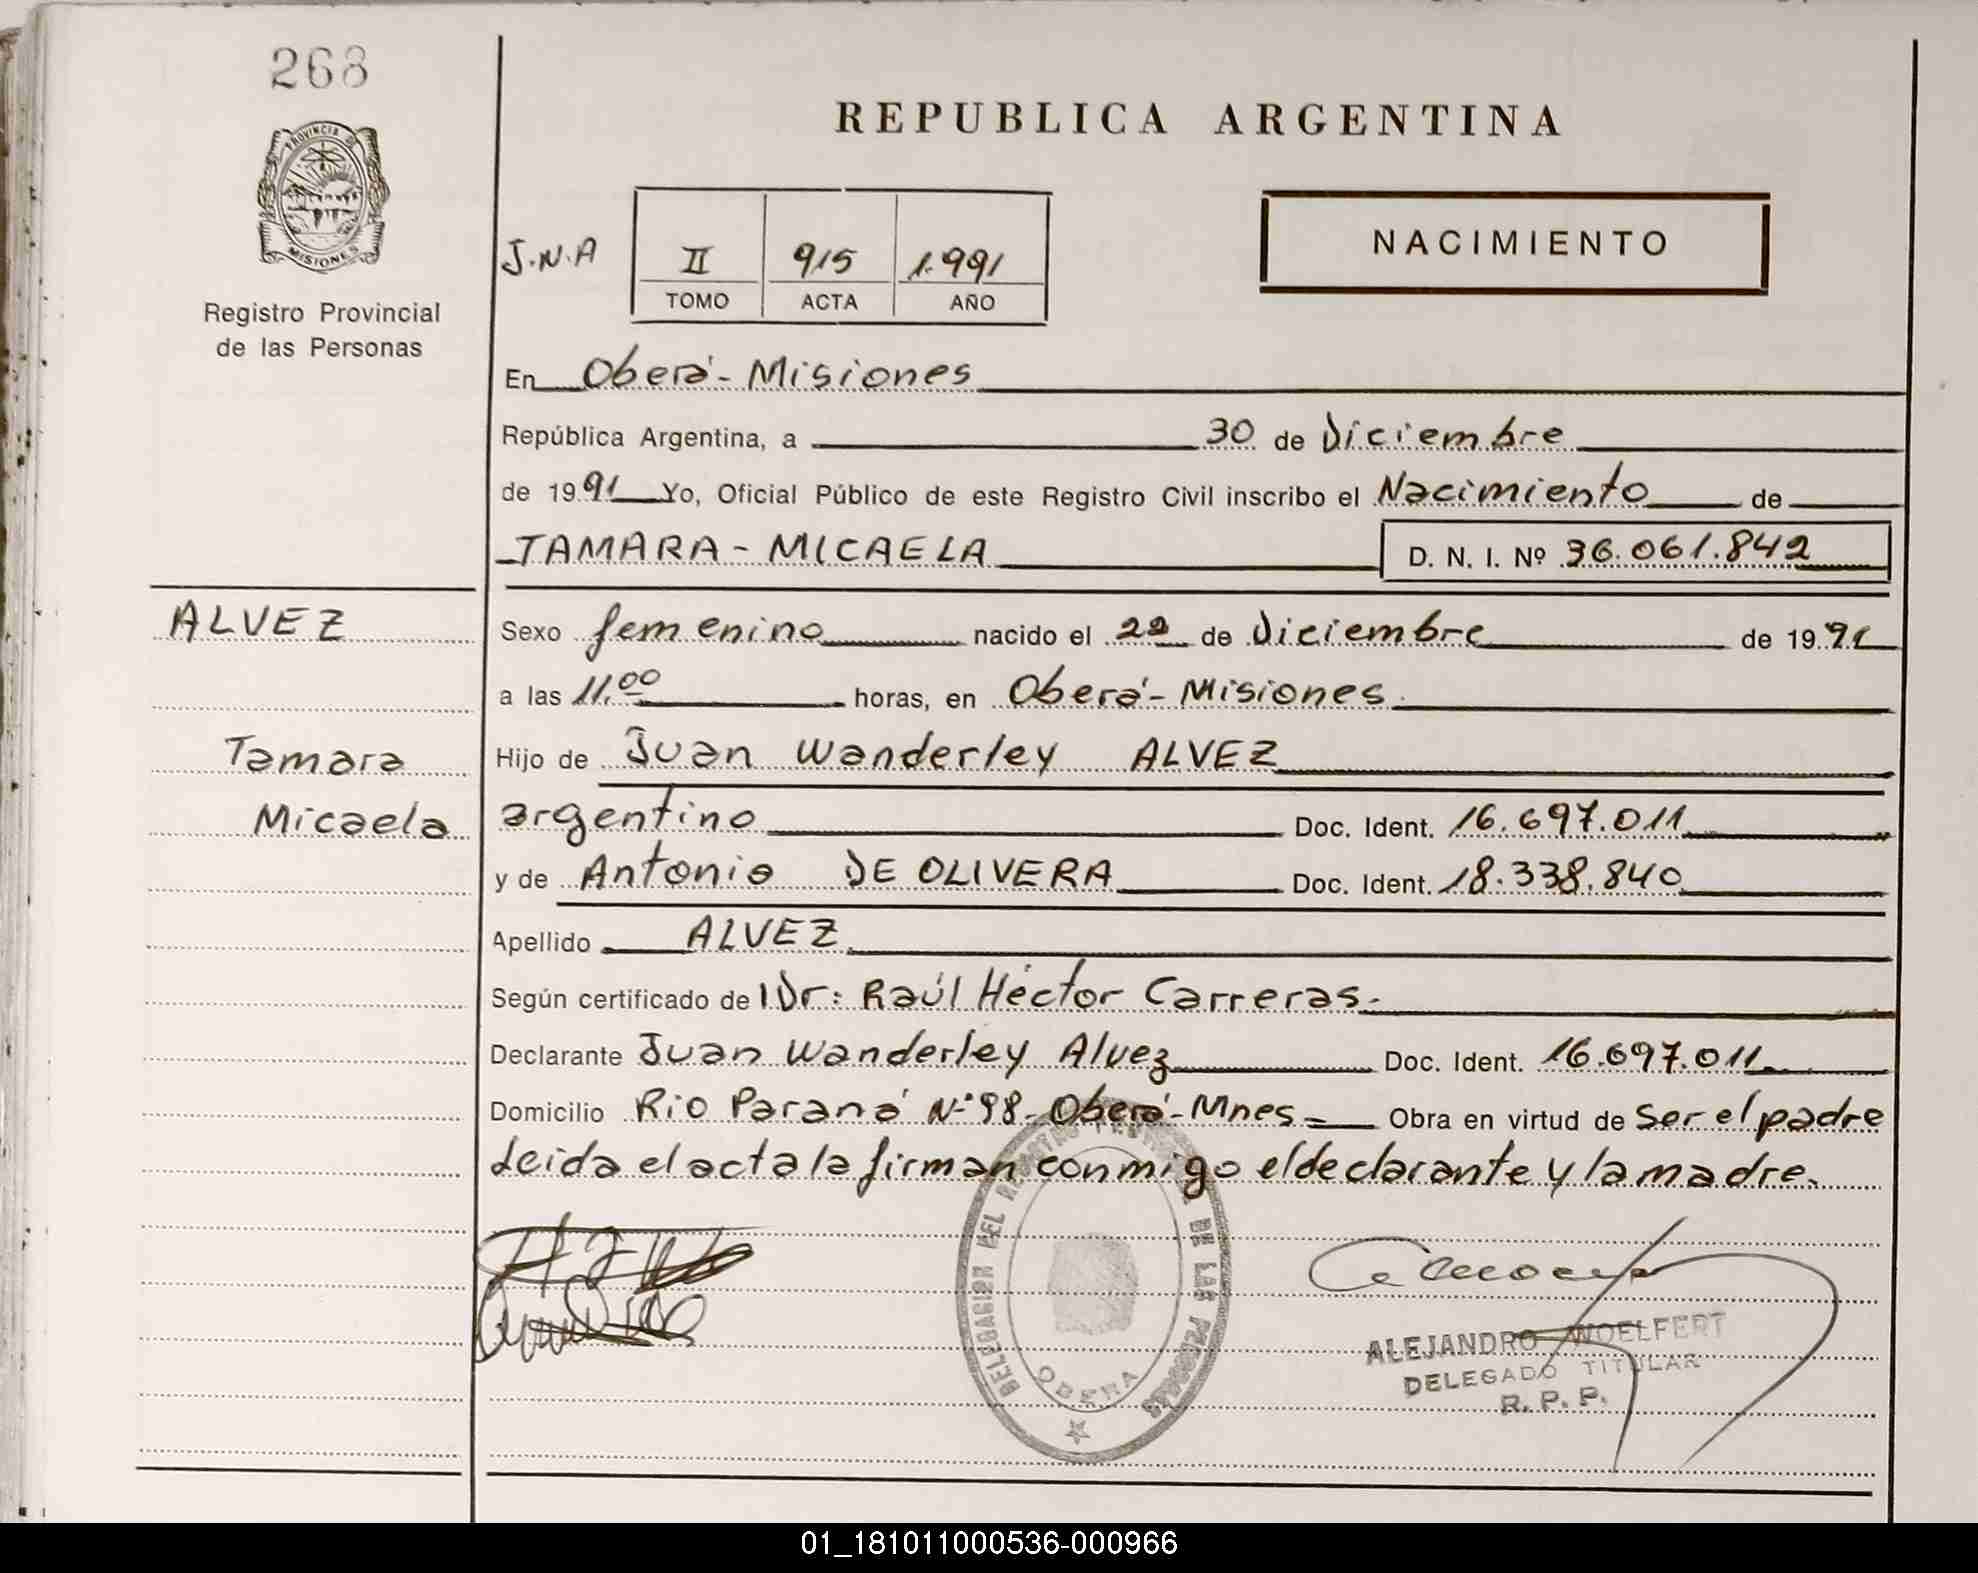 268
PROVINCIA DE
MISIONES
Registro Provincial
de las Personas
REPUBLICA ARGENTINA
NACIMIENTO
J.N.A
II 915 1.991
TOMO ACTA AÑO
En Oberá - Misiones
República Argentina, a 30 de Diciembre
de 1991 Yo, Oficial Público de este Registro Civil inscribo el Nacimiento de
TAMARA - MICAELA D. N. I. Nº 36.061.842
ALVEZ
Tamara
Micaela
Sexo femenino nacido el 22 de Diciembre de 1991
a las 11.00 horas, en Oberá - Misiones.
Hijo de Juan Wanderley ALVEZ
argentino Doc. Ident. 16.697.011
y de Antonia DE OLIVERA Doc. Ident. 18.338.840
Apellido ALVEZ
Según certificado de Dr: Raúl Héctor Carreras.-
Declarante Juan Wanderley Alvez Doc. Ident. 16.697.011
Domicilio Rio Paraná Nº 98 - Oberá - Mnes = Obra en virtud de Ser el padre
Leida el acta la firman conmigo el declarante y la madre.
DELEGACION DEL REGISTRO DE LAS PERSONAS
OBERA
ALEJANDRO WOELFERT
DELEGADO TITULAR
R. P. P.
01_181011000536-000966